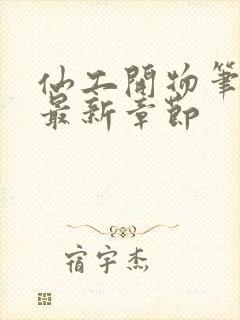 仙工開物筆
最新章節
宿宇杰